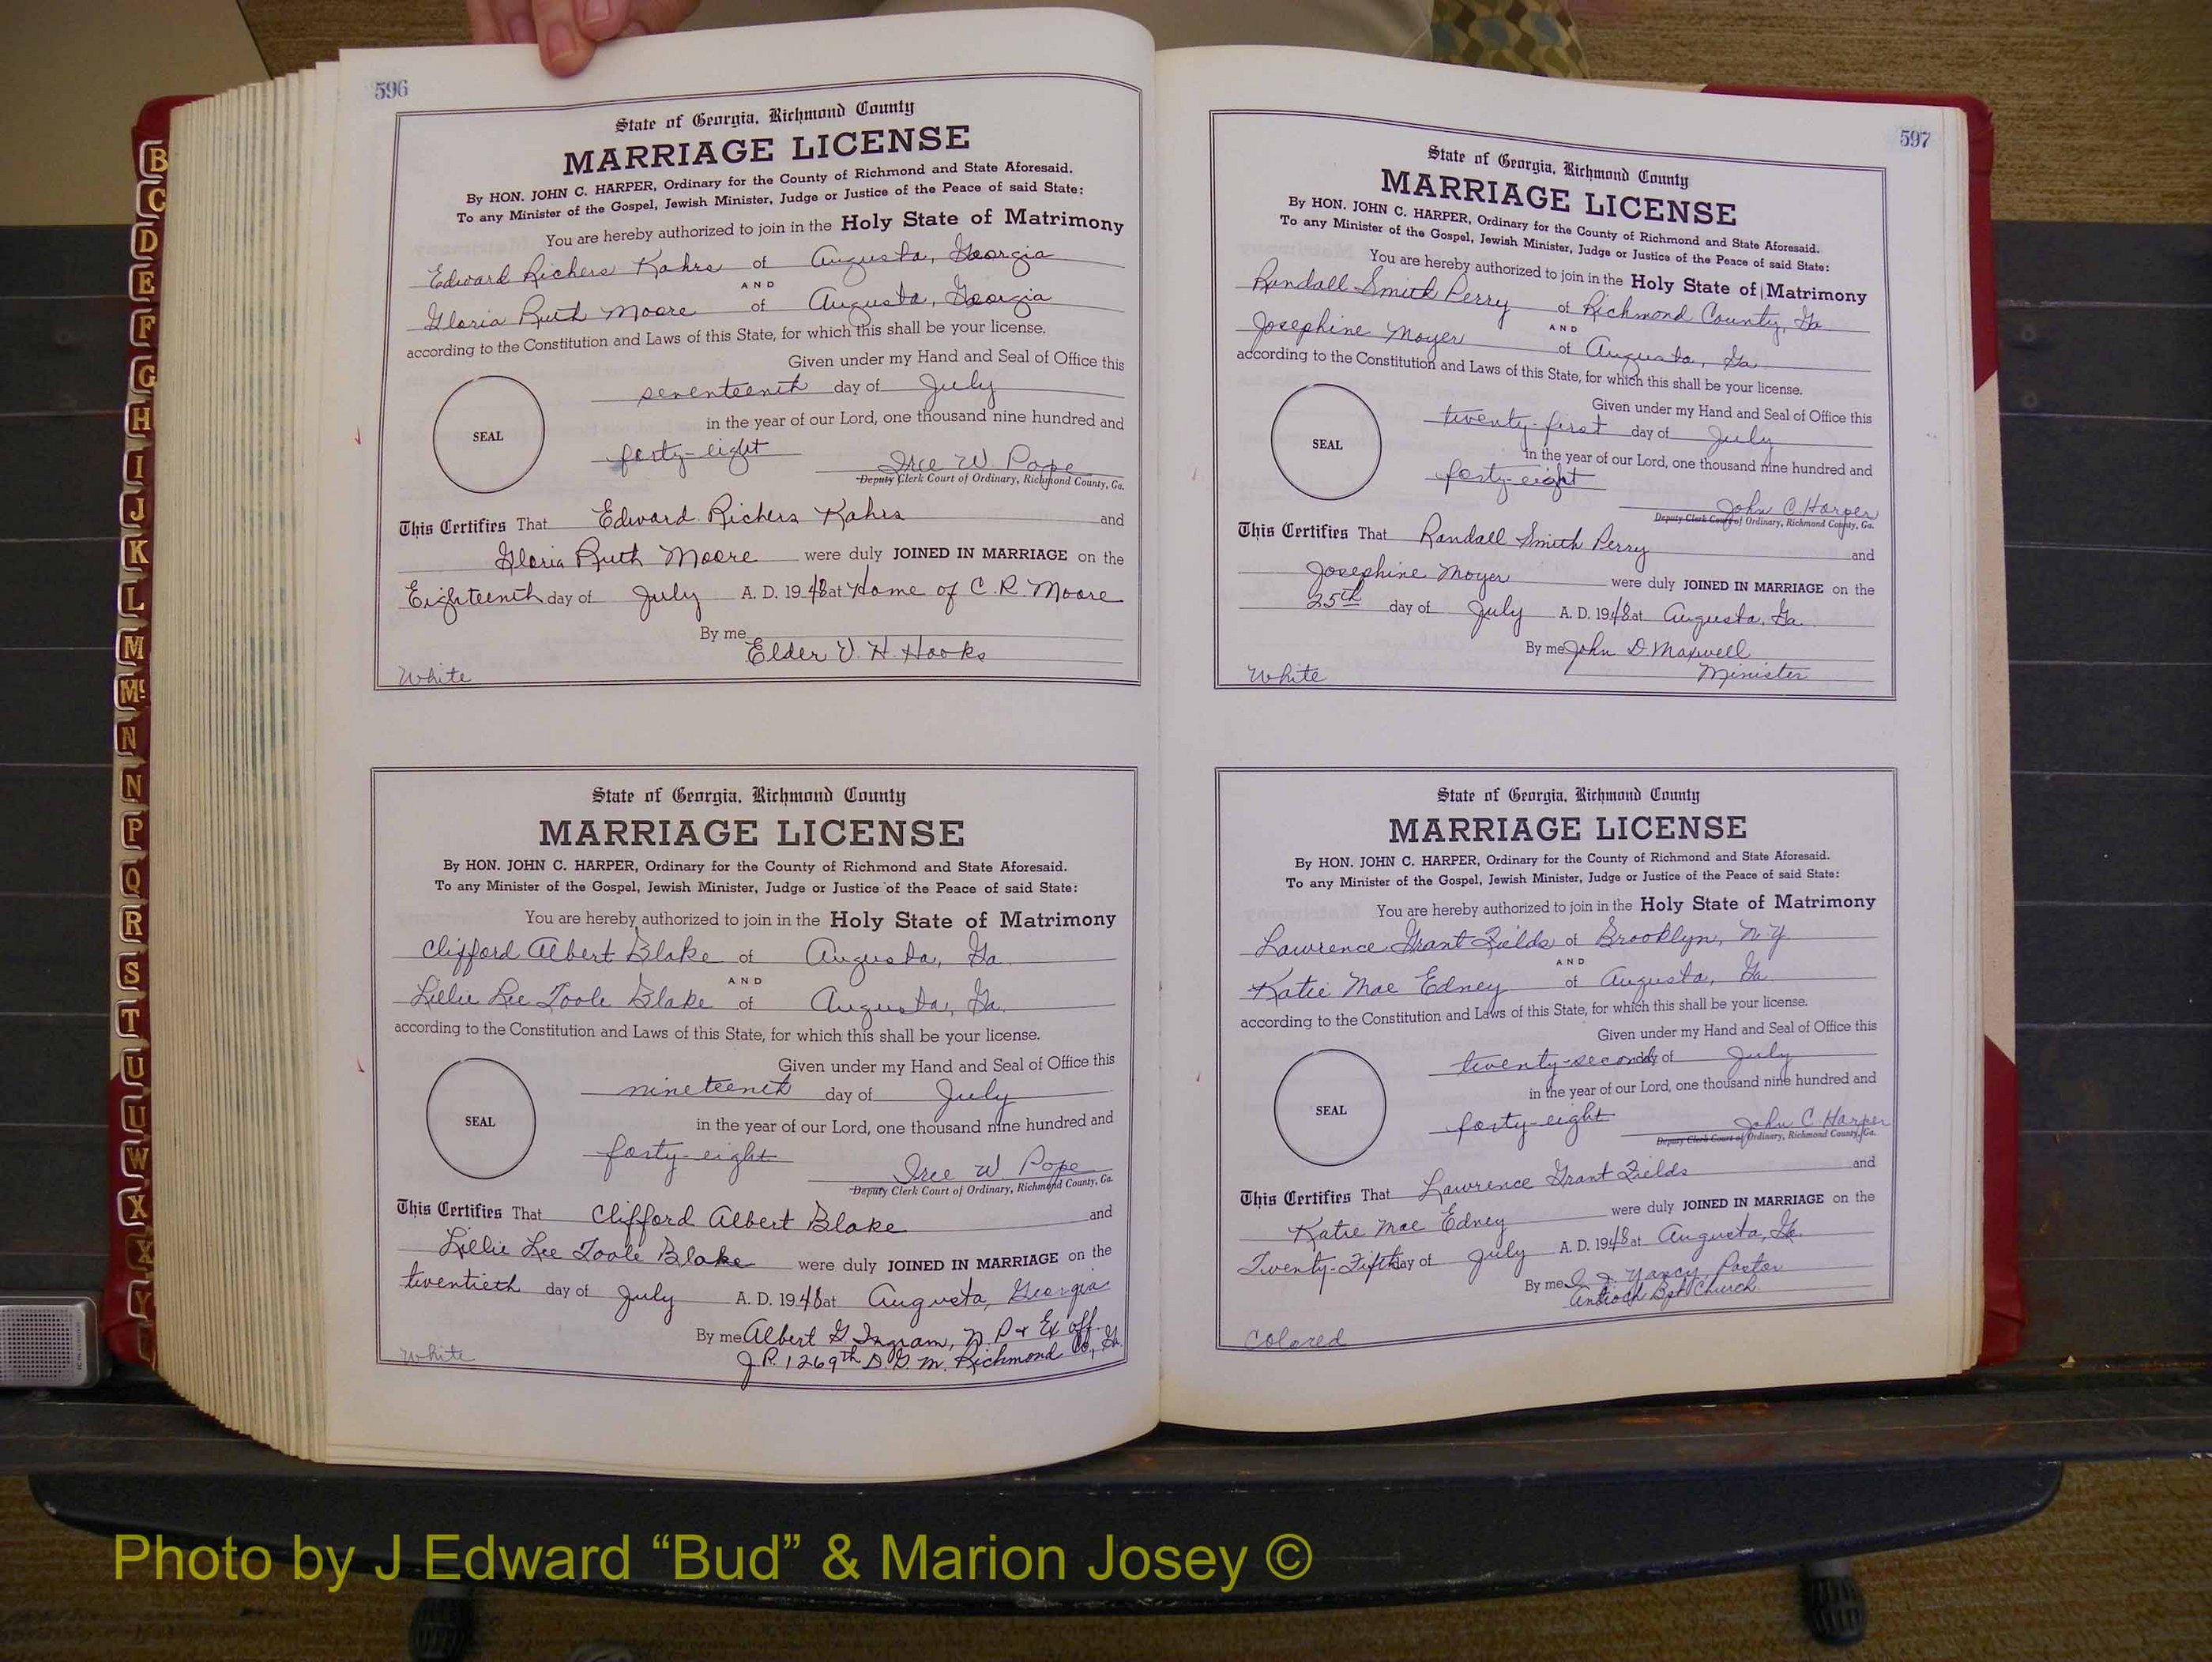 596
State of Georgia, Richmond County
MARRIAGE LICENSE
By HON. JOHN C. HARPER, Ordinary for the County of Richmond and State Aforesaid.
To any Minister of the Gospel, Jewish Minister, Judge or Justice of the Peace of said State:
You are hereby authorized to join in the Holy State of Matrimony
Edward Richers Kahrs of Augusta, Georgia
AND
Gloria Ruth Moore of Augusta, Georgia
according to the Constitution and Laws of this State, for which this shall be your license.
Given under my Hand and Seal of Office this
seventeenth day of July
in the year of our Lord, one thousand nine hundred and
SEAL
forty-eight
Iree W. Pope
Deputy Clerk Court of Ordinary, Richmond County, Ga.
This Certifies That Edward Richers Kahrs and
Gloria Ruth Moore were duly JOINED IN MARRIAGE on the
Eighteenth day of July A. D. 1948 at Home of C. R. Moore
By me
Elder V. H. Hooks
White
State of Georgia, Richmond County
MARRIAGE LICENSE
By HON. JOHN C. HARPER, Ordinary for the County of Richmond and State Aforesaid.
To any Minister of the Gospel, Jewish Minister, Judge or Justice of the Peace of said State:
You are hereby authorized to join in the Holy State of Matrimony
Clifford Albert Blake of Augusta, Ga.
AND
Lillie Lee Toole Blake of Augusta, Ga.
according to the Constitution and Laws of this State, for which this shall be your license.
Given under my Hand and Seal of Office this
nineteenth day of July
in the year of our Lord, one thousand nine hundred and
SEAL
forty-eight
Iree W. Pope
Deputy Clerk Court of Ordinary, Richmond County, Ga.
This Certifies That Clifford Albert Blake and
Lillie Lee Toole Blake were duly JOINED IN MARRIAGE on the
twentieth day of July A. D. 1948 at Augusta, Georgia
By me Albert G Ingram, N. P & Ex off.
J. P. 1269th D. G. M. Richmond Co., Ga.
White
597
State of Georgia, Richmond County
MARRIAGE LICENSE
By HON. JOHN C. HARPER, Ordinary for the County of Richmond and State Aforesaid.
To any Minister of the Gospel, Jewish Minister, Judge or Justice of the Peace of said State:
You are hereby authorized to join in the Holy State of Matrimony
Randall Smith Perry of Richmond County, Ga
AND
Josephine Moyer of Augusta, Ga
according to the Constitution and Laws of this State, for which this shall be your license.
Given under my Hand and Seal of Office this
twenty-first day of July
in the year of our Lord, one thousand nine hundred and
SEAL
forty-eight
John C. Harper
Deputy Clerk Court of Ordinary, Richmond County, Ga.
This Certifies That Randall Smith Perry and
Josephine Moyer were duly JOINED IN MARRIAGE on the
25th day of July A. D. 1948 at Augusta, Ga.
By me John D. Maxwell
Minister
White
State of Georgia, Richmond County
MARRIAGE LICENSE
By HON. JOHN C. HARPER, Ordinary for the County of Richmond and State Aforesaid.
To any Minister of the Gospel, Jewish Minister, Judge or Justice of the Peace of said State:
You are hereby authorized to join in the Holy State of Matrimony
Lawrence Grant Fields of Brooklyn, N.Y.
AND
Katie Mae Edney of Augusta, Ga
according to the Constitution and Laws of this State, for which this shall be your license.
Given under my Hand and Seal of Office this
twenty-second day of July
in the year of our Lord, one thousand nine hundred and
SEAL
forty-eight
John C Harper
Deputy Clerk Court of Ordinary, Richmond County, Ga.
This Certifies That Lawrence Grant Fields and
Katie Mae Edney were duly JOINED IN MARRIAGE on the
Twenty-Fifth day of July A. D. 1948 at Augusta, Ga.
By me Yancy, Pastor
Antioch Bpt Church
Colored
B
C
D
E
F
G
H
I
J
K
L
M
Mc
N
N
P
Q
R
S
T
U
U
W
X
X
Y
Photo by J Edward “Bud” & Marion Josey ©